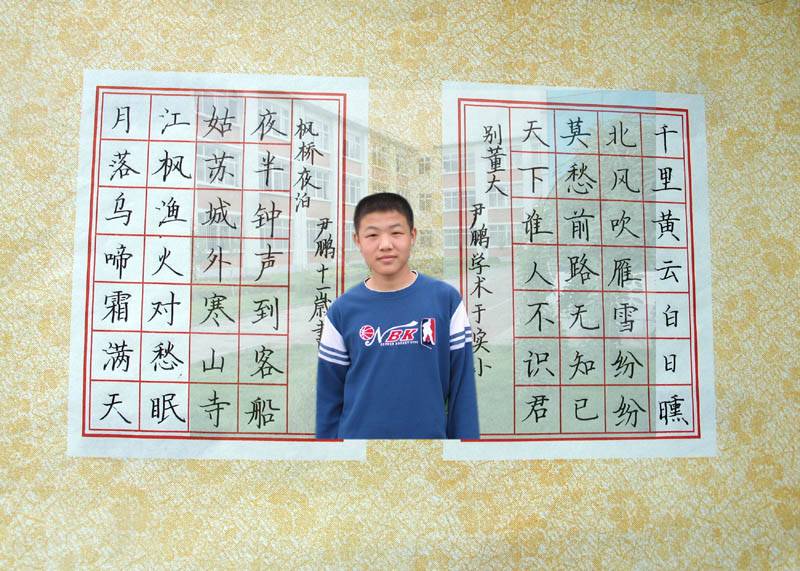 月落乌啼霜满天
江枫渔火对愁眠
姑苏城外寒山寺
夜半钟声到客船
枫桥夜泊
尹鹏十二歲
千里黄云白日曛
北风吹雁雪纷纷
莫愁前路无知已
天下谁人不识君
别董大
尹鹏学术于实小
NBK